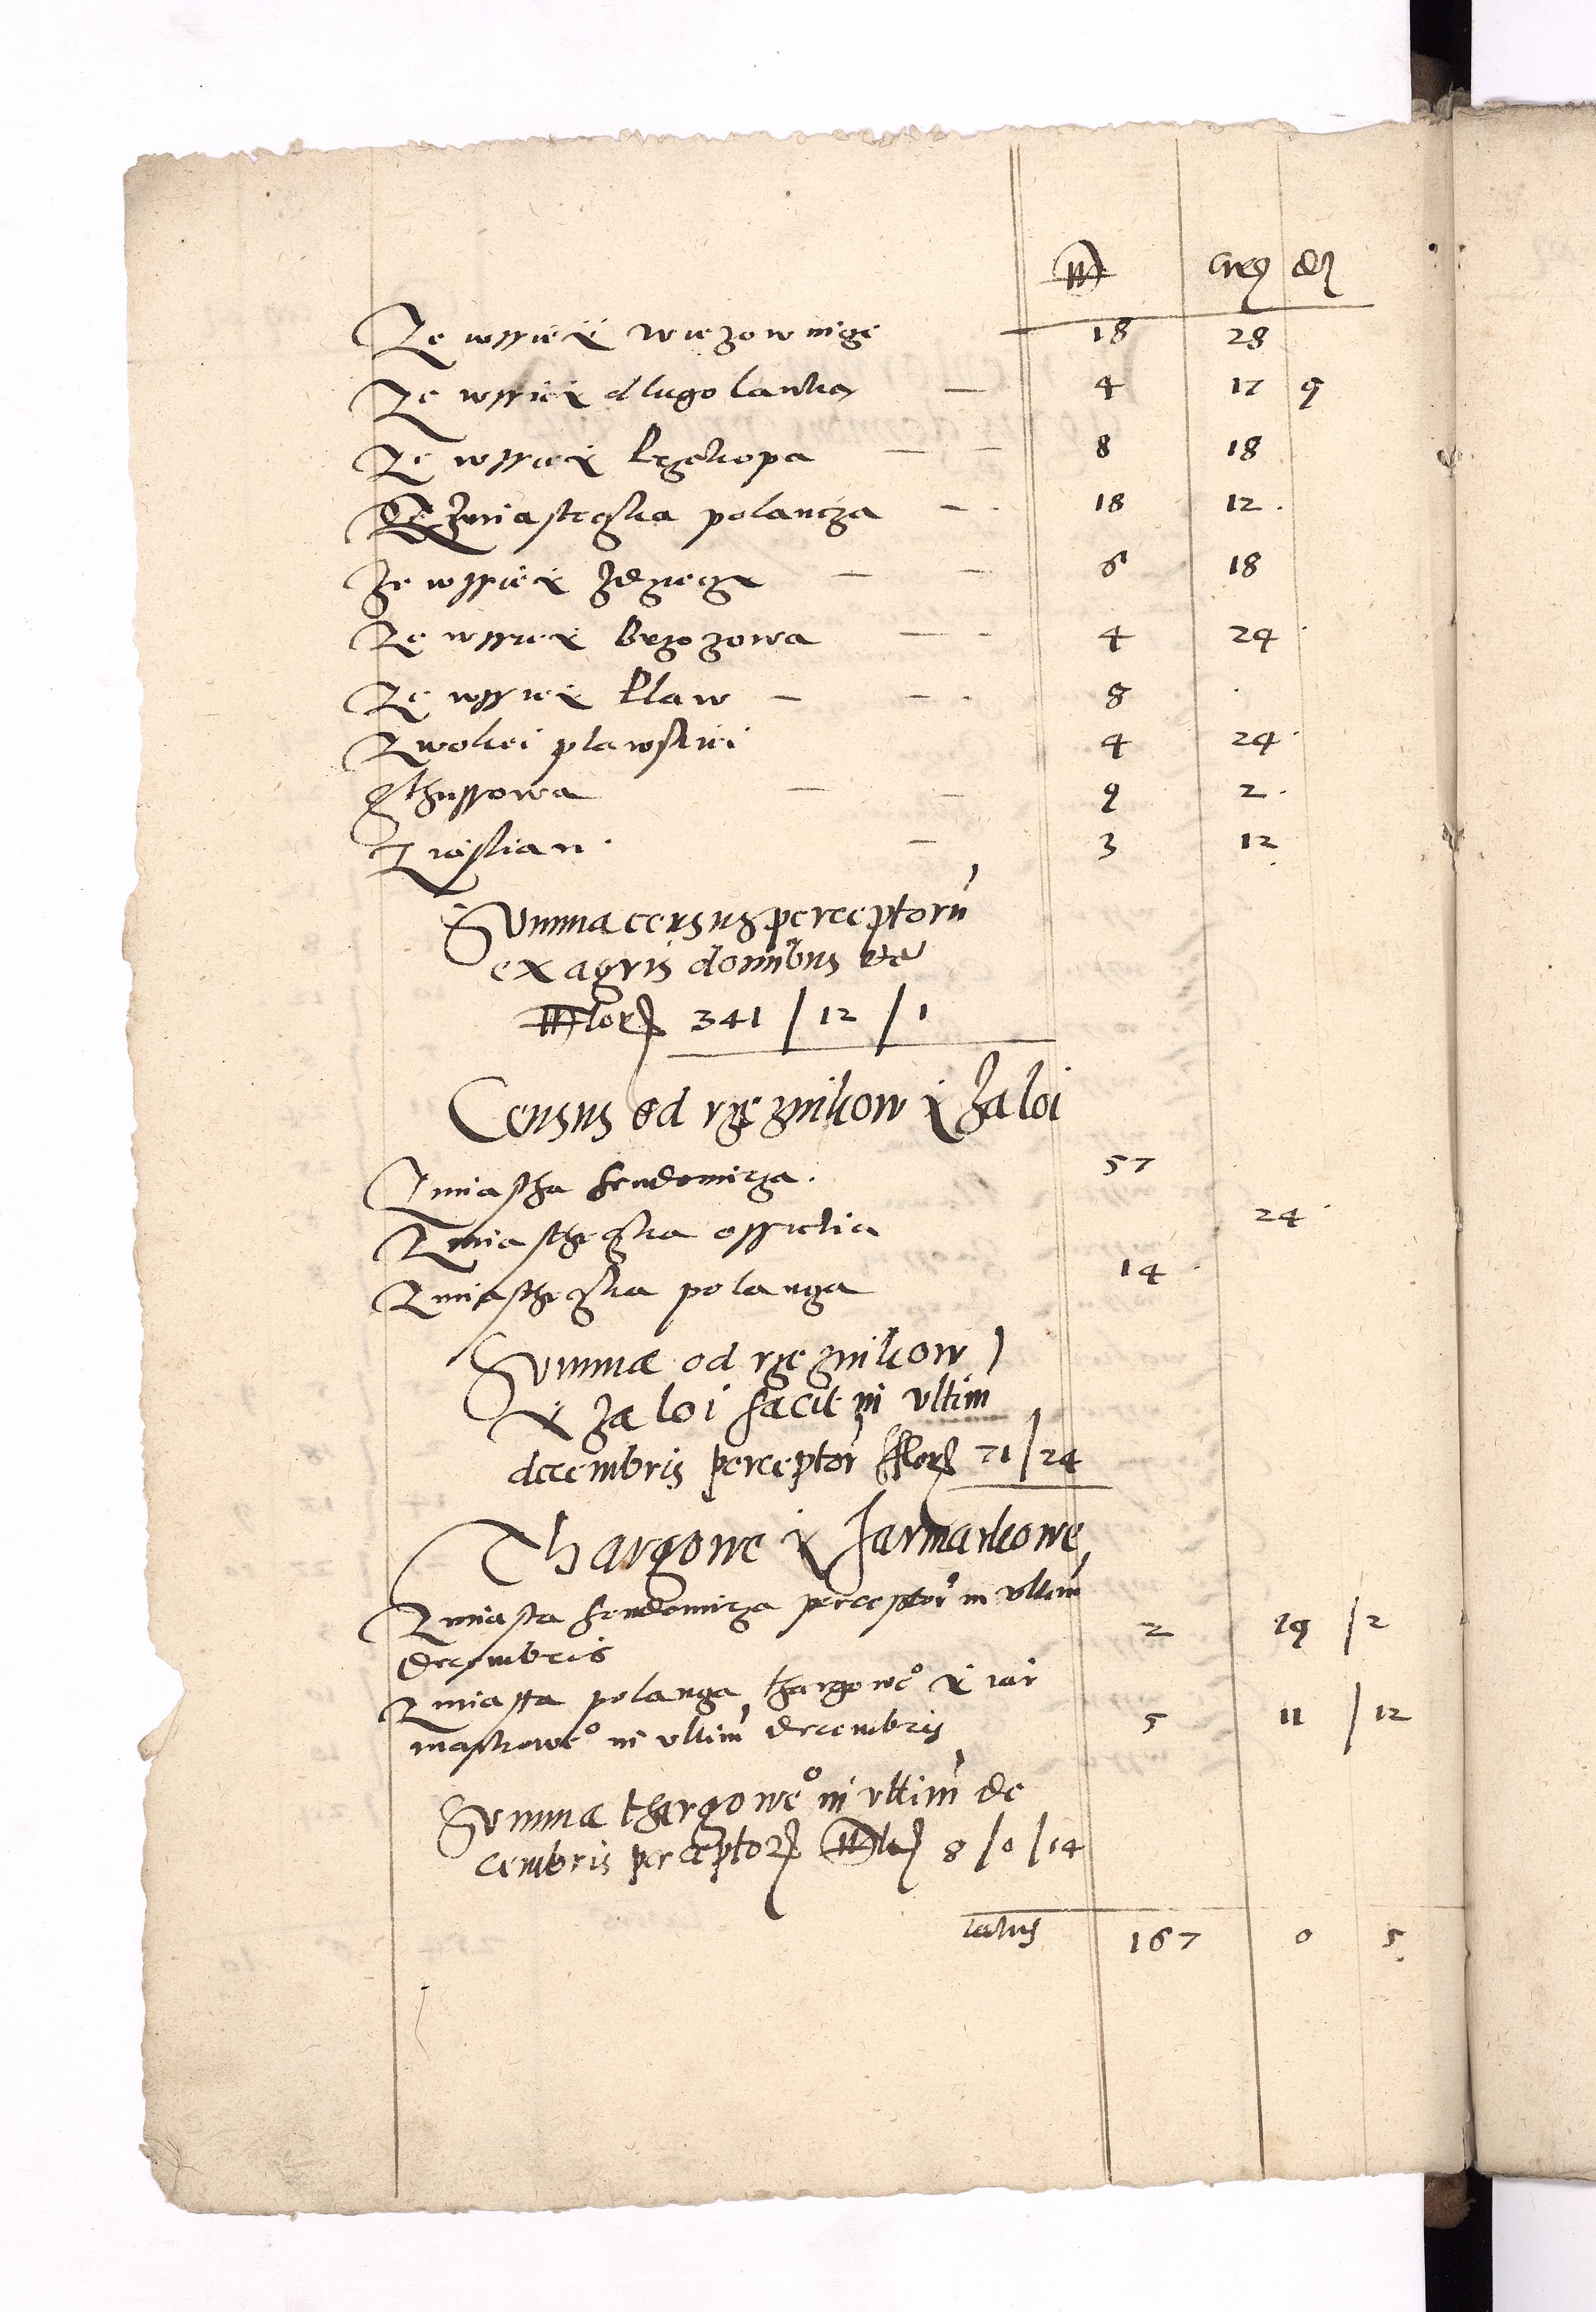 ff gros den
Ze wssiey wiezownige 18 28
Ze wssiey dlugolanka — 4 17 9
Ze wssiey krzekopa — — 8 18
Z miasteczka polancza — 18 12
Ze wssiey — — 6 18
Ze wssiey brzozowa — — 4 24
Ze wssiey Rlaw — — 8
Z wolkei plawskiei 4 24
Sthussowa — — 9 2
— 3 12
Summa census perceptorum
ex agris domibus etc
flor 341 / 12 / 1
Census od rzeznikow y za loi
Z miastha Sendomirza 57
Z miastheczka ossieka 24
Z miastheczka polanga 14
Summa od rzeznikow
y za loi facit in ultim
decembris perceptor flor 71 / 24
Thargowe y Jarmarkowe
Z miasta Sendomirza perceptor in ultim
decembris 2 19 / 2
Z miasta polanga thargoweo y iar
markoweo in ultim decembris 5 11 / 12
Summa thargoweo in ultim de
cembris perceptor fl 8 / 0 / 14
latus 167 0 5